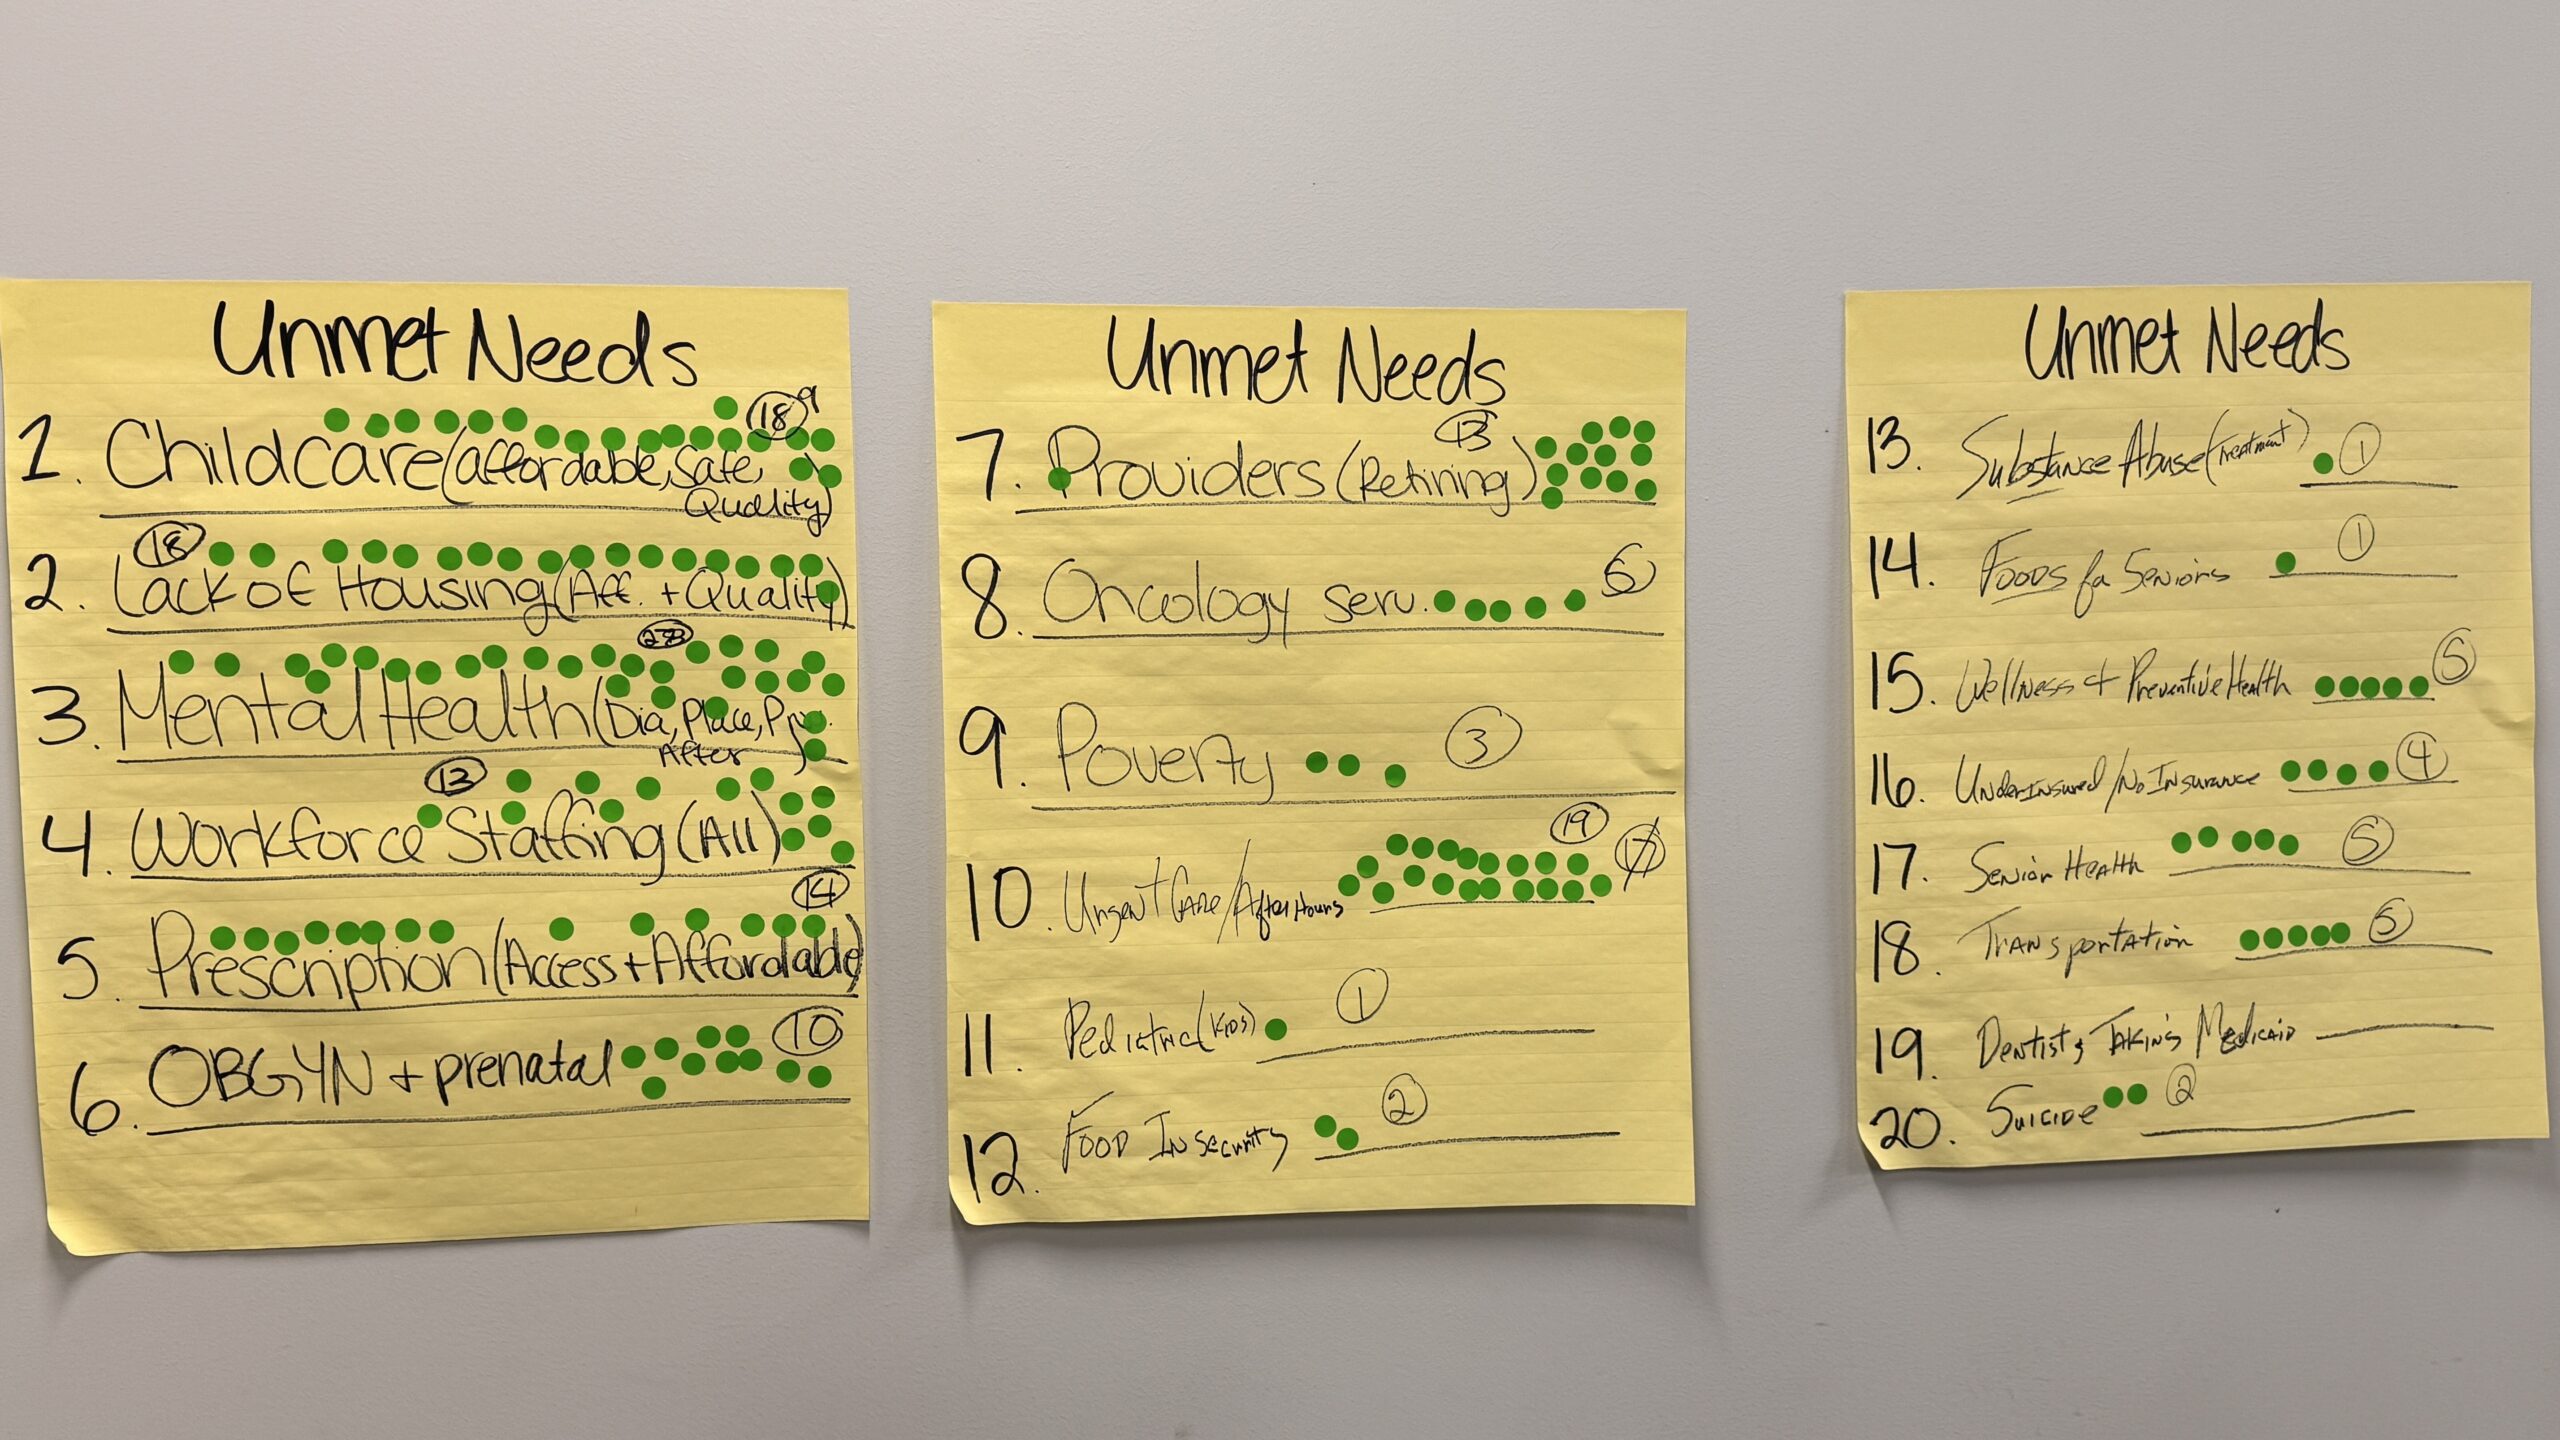 Unmet Needs
18 9
1. Childcare (affordable, Safe,
Quality)
18
2. Lack of Housing (Aff. + Quality)
3. Mental Health (Dia, Place,
After
13
4. Workforce Staffing (All)
14
5. Prescription (Access + Affordable)
6. OBGYN + prenatal 10
Unmet Needs
13
7. Providers (Retiring)
8. Oncology serv. 5
9. Poverty 3
19
10. Urgent Care/After Hours 17
11. Pediatric (Kids) 1
12. Food Insecurity 2
Unmet Needs
13. Substance Abuse (Treatment) 1
14. Foods for Seniors 1
15. Wellness + Preventive Health 5
16. UnderInsured/No Insurance 4
17. Senior Health 5
18. Transportation 5
19. Dentists Taking Medicaid
20. Suicide 2